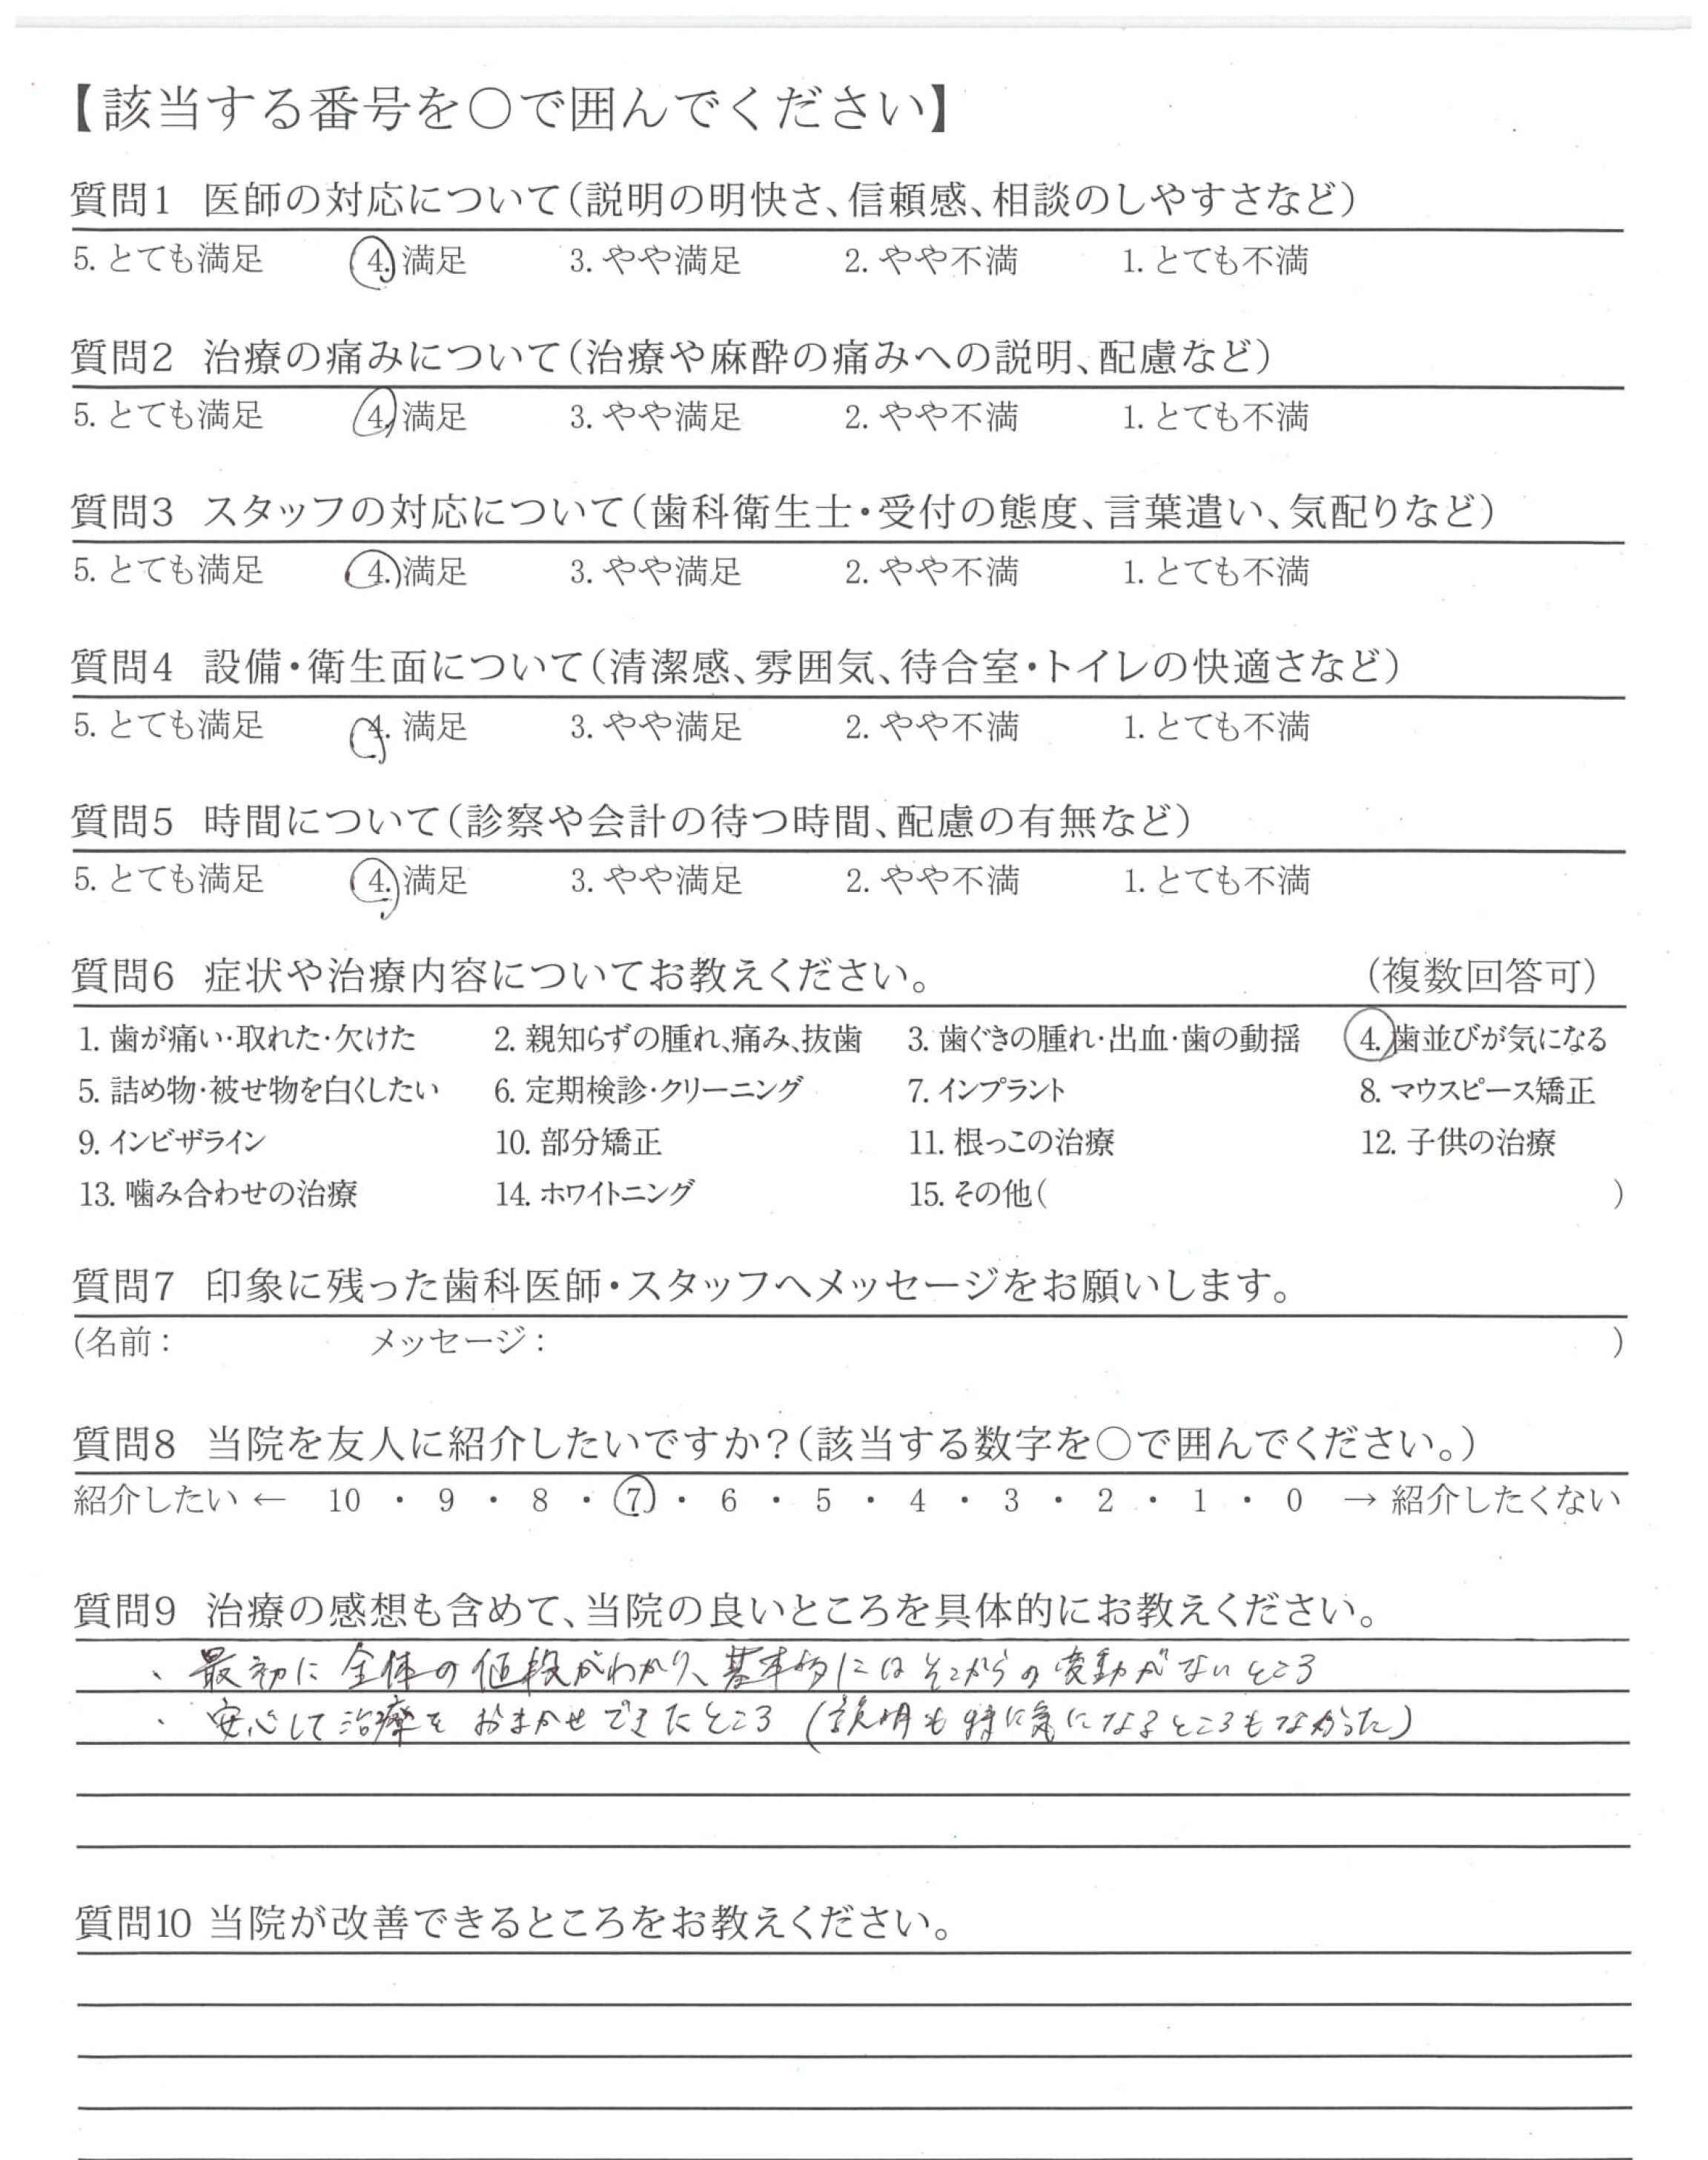 【該当する番号を○で囲んでください】
質問1 医師の対応について(説明の明快さ、信頼感、相談のしやすさなど)
5. とても満足 4. 満足 3. やや満足 2. やや不満 1. とても不満
質問2 治療の痛みについて(治療や麻酔の痛みへの説明、配慮など)
5. とても満足 4. 満足 3. やや満足 2. やや不満 1. とても不満
質問3 スタッフの対応について(歯科衛生士・受付の態度、言葉遣い、気配りなど)
5. とても満足 4. 満足 3. やや満足 2. やや不満 1. とても不満
質問4 設備・衛生面について(清潔感、雰囲気、待合室・トイレの快適さなど)
5. とても満足 4. 満足 3. やや満足 2. やや不満 1. とても不満
質問5 時間について(診察や会計の待つ時間、配慮の有無など)
5. とても満足 4. 満足 3. やや満足 2. やや不満 1. とても不満
質問6 症状や治療内容についてお教えください。 (複数回答可)
1. 歯が痛い・取れた・欠けた 2. 親知らずの腫れ、痛み、抜歯 3. 歯ぐきの腫れ・出血・歯の動揺 4. 歯並びが気になる
5. 詰め物・被せ物を白くしたい 6. 定期検診・クリーニング 7. インプラント 8. マウスピース矯正
9. インビザライン 10. 部分矯正 11. 根っこの治療 12. 子供の治療
13. 噛み合わせの治療 14. ホワイトニング 15. その他( )
質問7 印象に残った歯科医師・スタッフへメッセージをお願いします。
(名前: メッセージ: )
質問8 当院を友人に紹介したいですか?(該当する数字を○で囲んでください。)
紹介したい ← 10 ・ 9 ・ 8 ・ 7 ・ 6 ・ 5 ・ 4 ・ 3 ・ 2 ・ 1 ・ 0 → 紹介したくない
質問9 治療の感想も含めて、当院の良いところを具体的にお教えください。
、最初に全体の値段がわかり、基本的にはそこからの変動がないところ
・安心して治療をおまかせできたところ(説明も特に気になるところもなかった)
質問10 当院が改善できるところをお教えください。